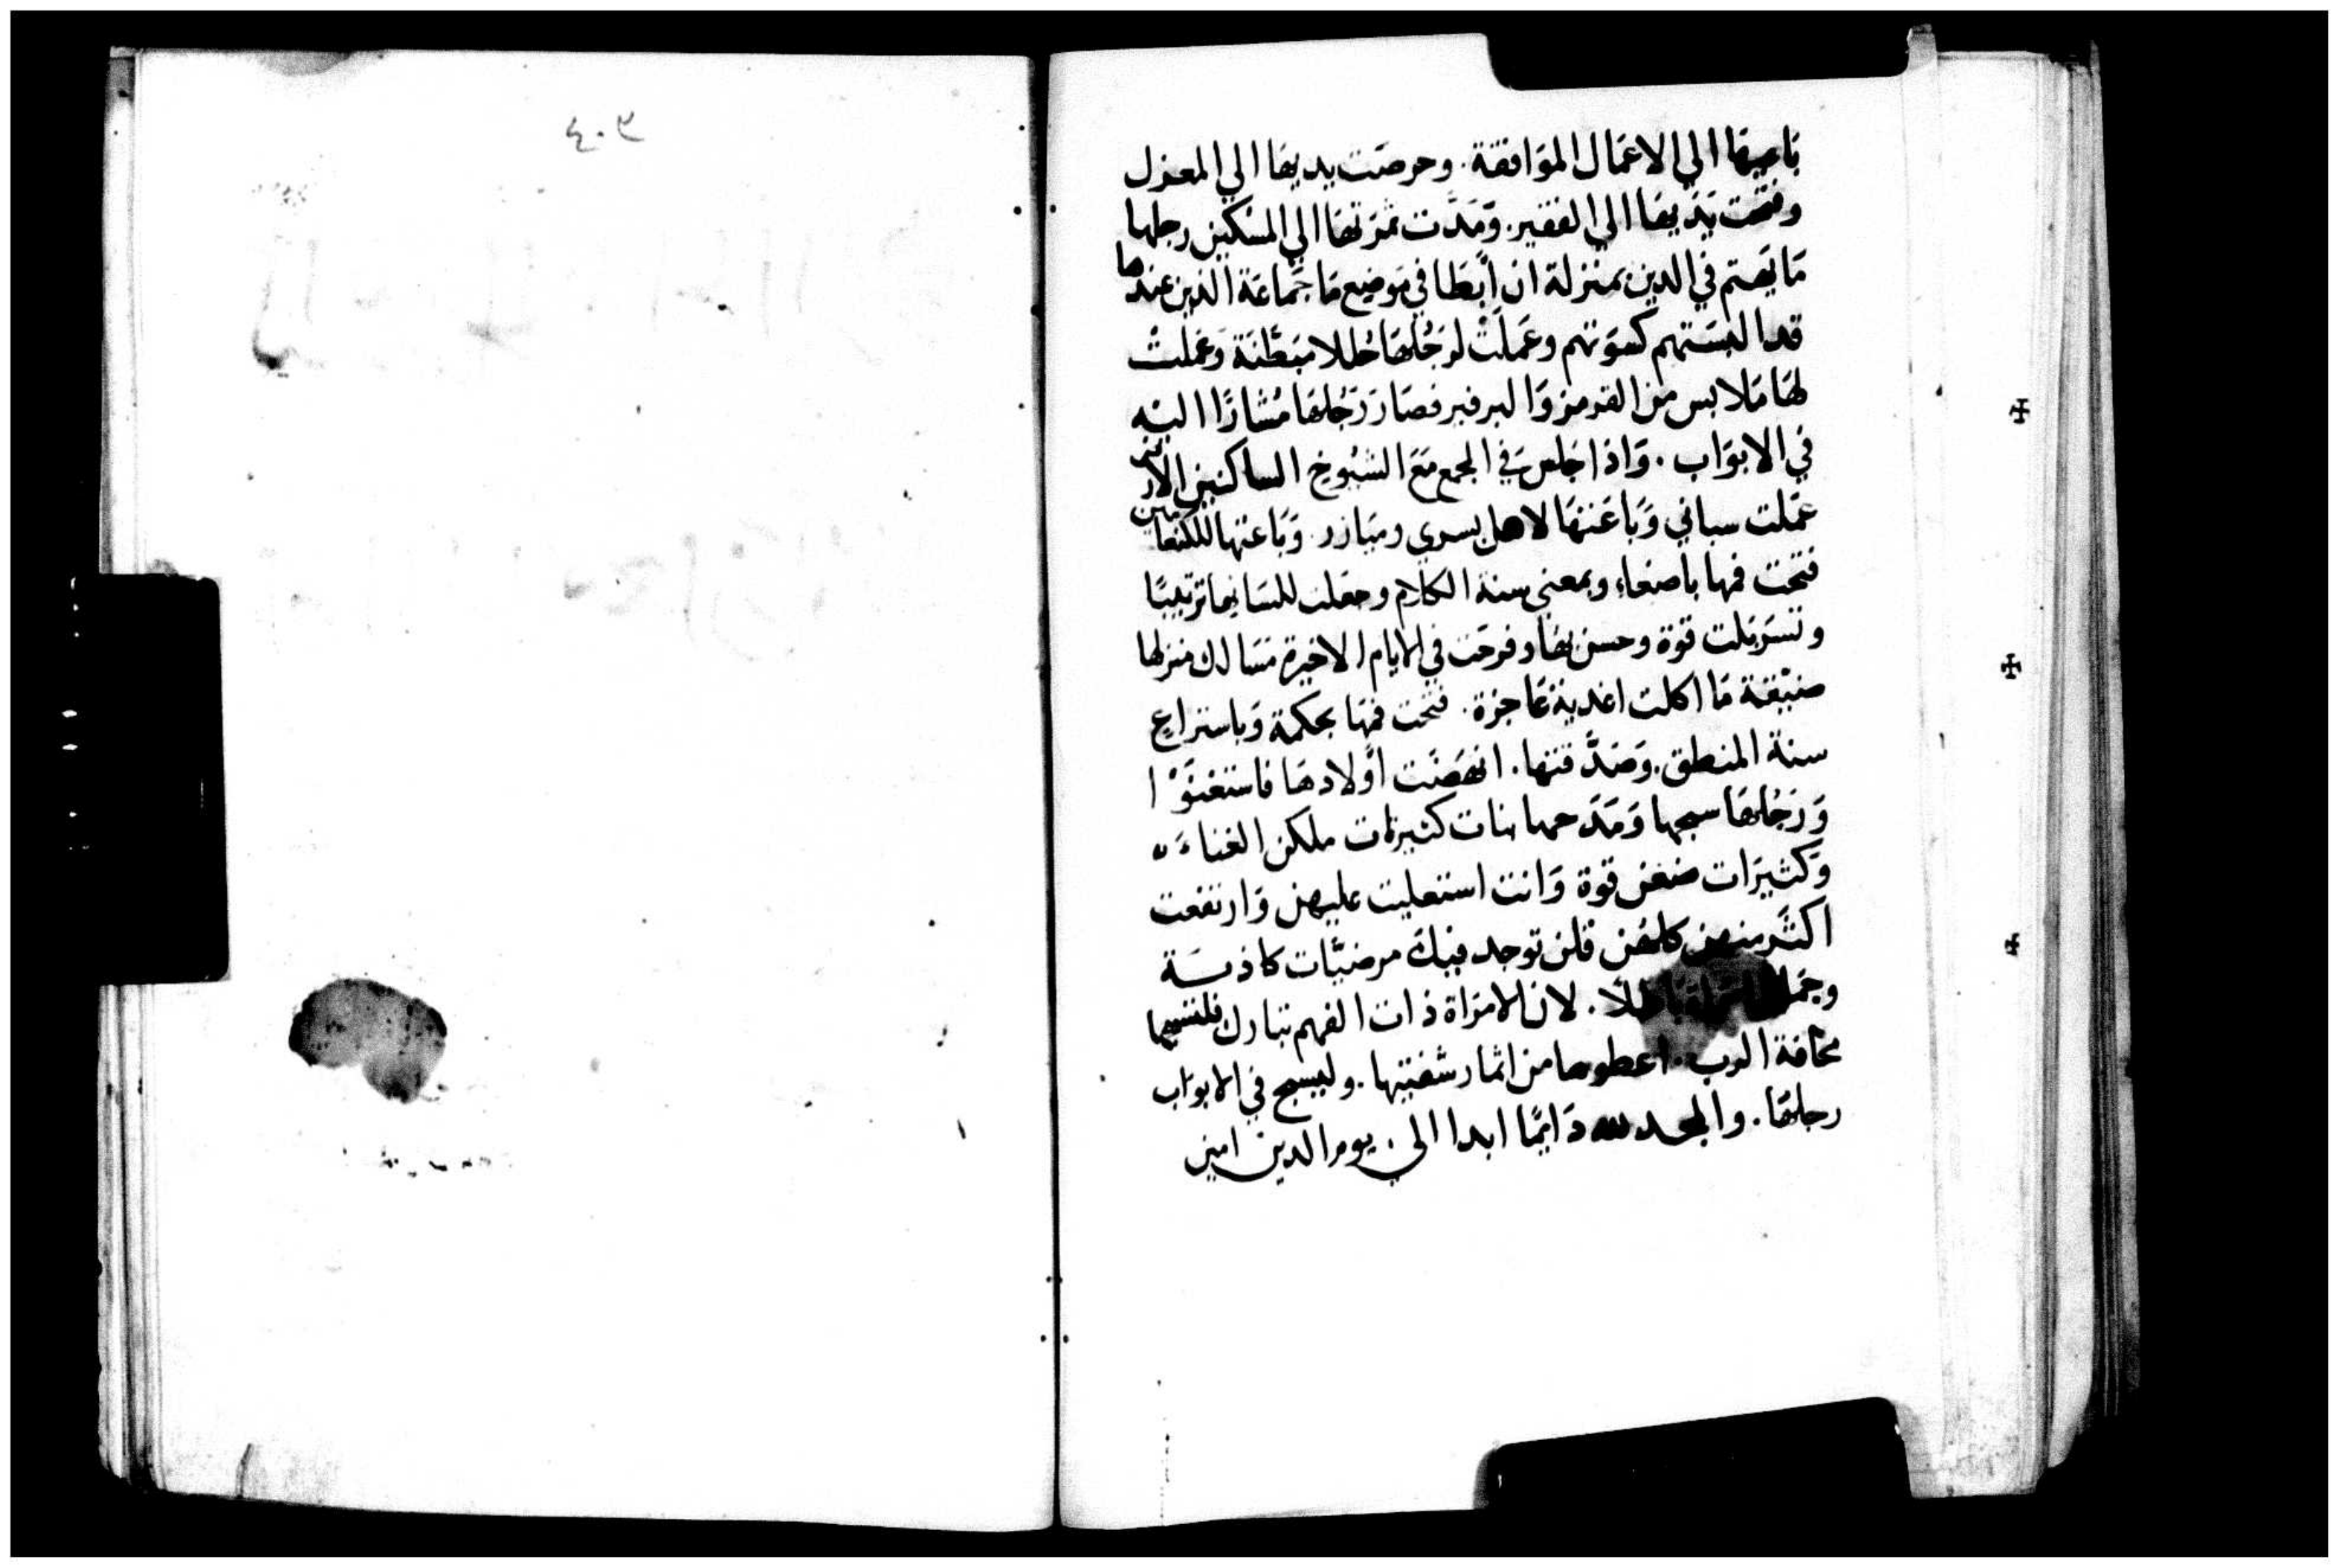 باعيها الي الاعمال الموافقة. وحرصت يديها الي المعزل
وفتحت يديها الي الفقير. ومدت ثمرتها الي المسكين رجلها
ما يهتم في الدين بمنزلة ان أبطا في موضع ما جماعة الذين عندها
قد البستهم كسوتهم وعملت لرجلها حللا مبطنة وعملت
لها ملابس من القرمز والبرفير فصار رجلها مشارًا اليه
في الابواب. واذا جلس في المجمع مع الشيوخ الساكنين الارض
عملت سباني وباعتها لاهل يسري وميازر. وباعتها للكنعانيين
فتحت فمها باصغاء وبمعني سنة الكلام وجعلت للسانها ترتيبًا
وتسربلت قوة وحسن بها وفرحت في الايام الاخيرة مسالك منزلها
ضيقة ما اكلت اغدية عاجزة. فتحت فمها بحكمة وباستراع
سنة المنطق. وصدقتها. انهضت أولادها فاستغنوا
ورجلها سبحها ومدحها بنات كثيرات ملكن الغناء
وكثيرات صنعن قوة وانت استعليت عليهن وارتفعت
اكثر منهن كلهن فلن توجد فيك مرضيات كاذبة
لان الامراة ذات الفهم تبارك فلتسبحها
مخافة الرب. اعطوها من اثمار شفتيها. وليسبح في الابواب
رجلها. والمجد لله دايمًا ابدا الي يوم الدين امين